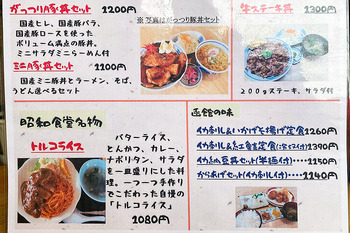 がっつり豚丼セット 1200円
国産ヒレ、国産豚バラ、
国産豚ロースを使った
ボリューム満点の豚丼。
ミニサラダミニらーめんセット
ミニ豚丼セット 1100円
国産ミニ豚丼とラーメン、そば、
うどん選べるセット
※写真はがっつり豚丼セット
牛ステーキ丼 1300円
200gステーキ、サラダ付
昭和食堂名物
トルコライス
バターライス、
とんかつ、カレー、
ナポリタン、サラダ
を一皿盛りにした料
理。一つ一つ手作り
でこだわった自慢の
「トルコライス」
1080円
函館の味
イカ刺し&いかげそ揚げ定食 1260円
1390円
イカ納豆丼セット(半麺付)・・・・1150円
からあげセット(イカ刺し付)・・・・1140円